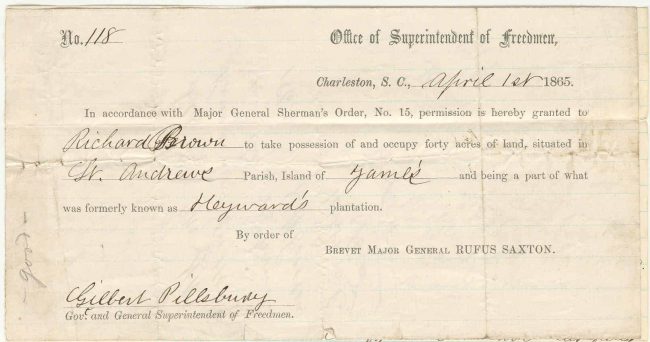 No. 118
Office of Superintendent of Freedmen,
Charleston, S. C., April 1st 1865.
In accordance with Major General Sherman's Order, No. 15, permission is hereby granted to
Richard Brown to take possession of and occupy forty acres of land, situated in
St. Andrews Parish, Island of James and being a part of what
was formerly known as Heyward's plantation.
By order of
Brevet Major General RUFUS SAXTON.
Gilbert Pillsbury
Gov't and General Superintendent of Freedmen.